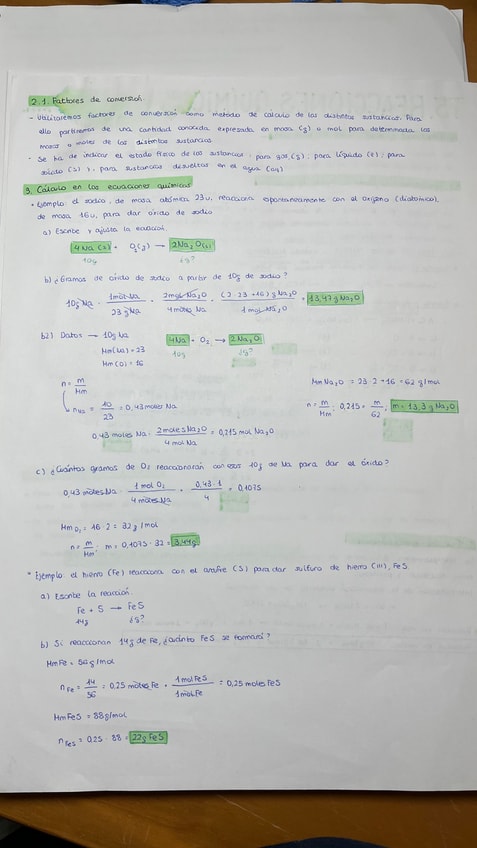 2.1. Factores de conversión.
- Utilizaremos factores de conversión como método de cálculo de las distintas sustancias. Para
ello partiremos de una cantidad conocida expresada en masa (g) o mol para determinada las
masa o moles de las distintas sustancias.
- Se ha de indicar el estado físico de las sustancias: para gas (g); para líquido (l); para
sólido (s) y, para sustancias disueltas en el agua (aq)
3. Cálculo en las ecuaciones químicas
* Ejemplo: el sodio, de masa atómica 23u, reacciona espontáneamente con el oxígeno (diatómico),
de masa 16u, para dar óxido de sodio
a) Escribe y ajusta la ecuación.
4 Na (s) + O₂ (g) → 2 Na₂O (s)
10g ¿g?
b) ¿Gramos de óxido de sodio a partir de 10g de sodio?
10g Na · 1 mol Na / 23 g Na · 2 mol Na₂O / 4 moles Na · (2·23+16) g Na₂O / 1 mol Na₂O = 13,47 g Na₂O
b2) Datos → 10g Na 4 Na + O₂ → 2 Na₂O
Mm (Na) = 23 10g ¿g?
Mm (O) = 16
n = m / Mm Mm Na₂O = 23·2 + 16 = 62 g/mol
n Na = 10 / 23 = 0,43 moles Na n = m / Mm ; 0,215 = m / 62 ; m = 13,3 g Na₂O
0,43 moles Na · 2 moles Na₂O / 4 mol Na = 0,215 mol Na₂O
c) ¿Cuántos gramos de O₂ reaccionarán con esos 10g de Na para dar el óxido?
0,43 moles Na · 1 mol O₂ / 4 moles Na = 0,43·1 / 4 = 0,1075
Mm O₂ = 16·2 = 32 g/mol
n = m / Mm ; m = 0,1075 · 32 = 3,44g
* Ejemplo: el hierro (Fe) reacciona con el azufre (S) para dar sulfuro de hierro (III), FeS.
a) Escribe la reacción.
Fe + S → FeS
14g ¿g?
b) Si reaccionan 14g de Fe, ¿cuánto FeS se formará?
Mm Fe = 56 g/mol
n Fe = 14 / 56 = 0,25 moles Fe · 1 mol FeS / 1 mol Fe = 0,25 moles FeS
Mm FeS = 88g/mol
n FeS = 0,25 · 88 = 22g FeS